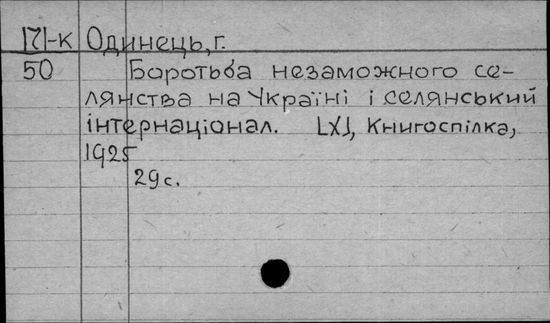 171-к Одинець, г.
50 Боротьба незаможного се-
лянства на Україні і селянський
інтернаціонал. [X], Книгоспілка,
1925
29 с.